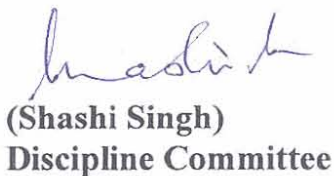 (Shashi Singh)
Discipline Committee